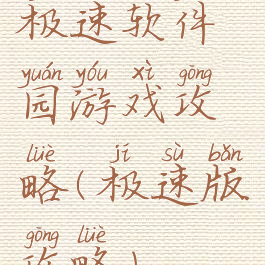 极速软件
yuán yóu xì gōng
园游戏攻
lüè jí sù bǎn
略(极速版
gōng lüè
攻略)